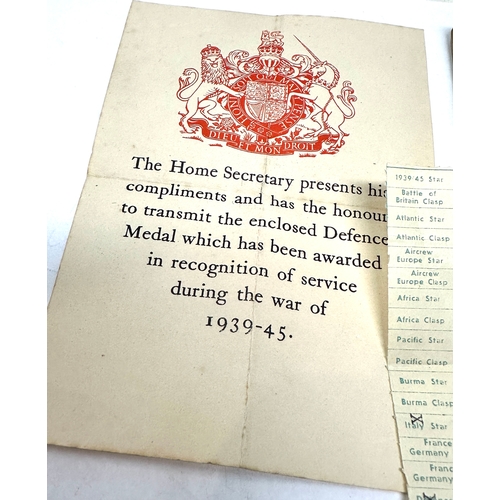 HONI SOIT QUI MAL Y PENSE
DIEU ET MON DROIT
The Home Secretary presents his
compliments and has the honour
to transmit the enclosed Defence
Medal which has been awarded
in recognition of service
during the war of
1939-45.
1939/45 Star
Battle of
Britain Clasp
Atlantic Star
Atlantic Clasp
Aircrew
Europe Star
Aircrew
Europe Clasp
Africa Star
Africa Clasp
Pacific Star
Pacific Clasp
Burma Star
Burma Clasp
Italy Star
France
Germany
France
Germany